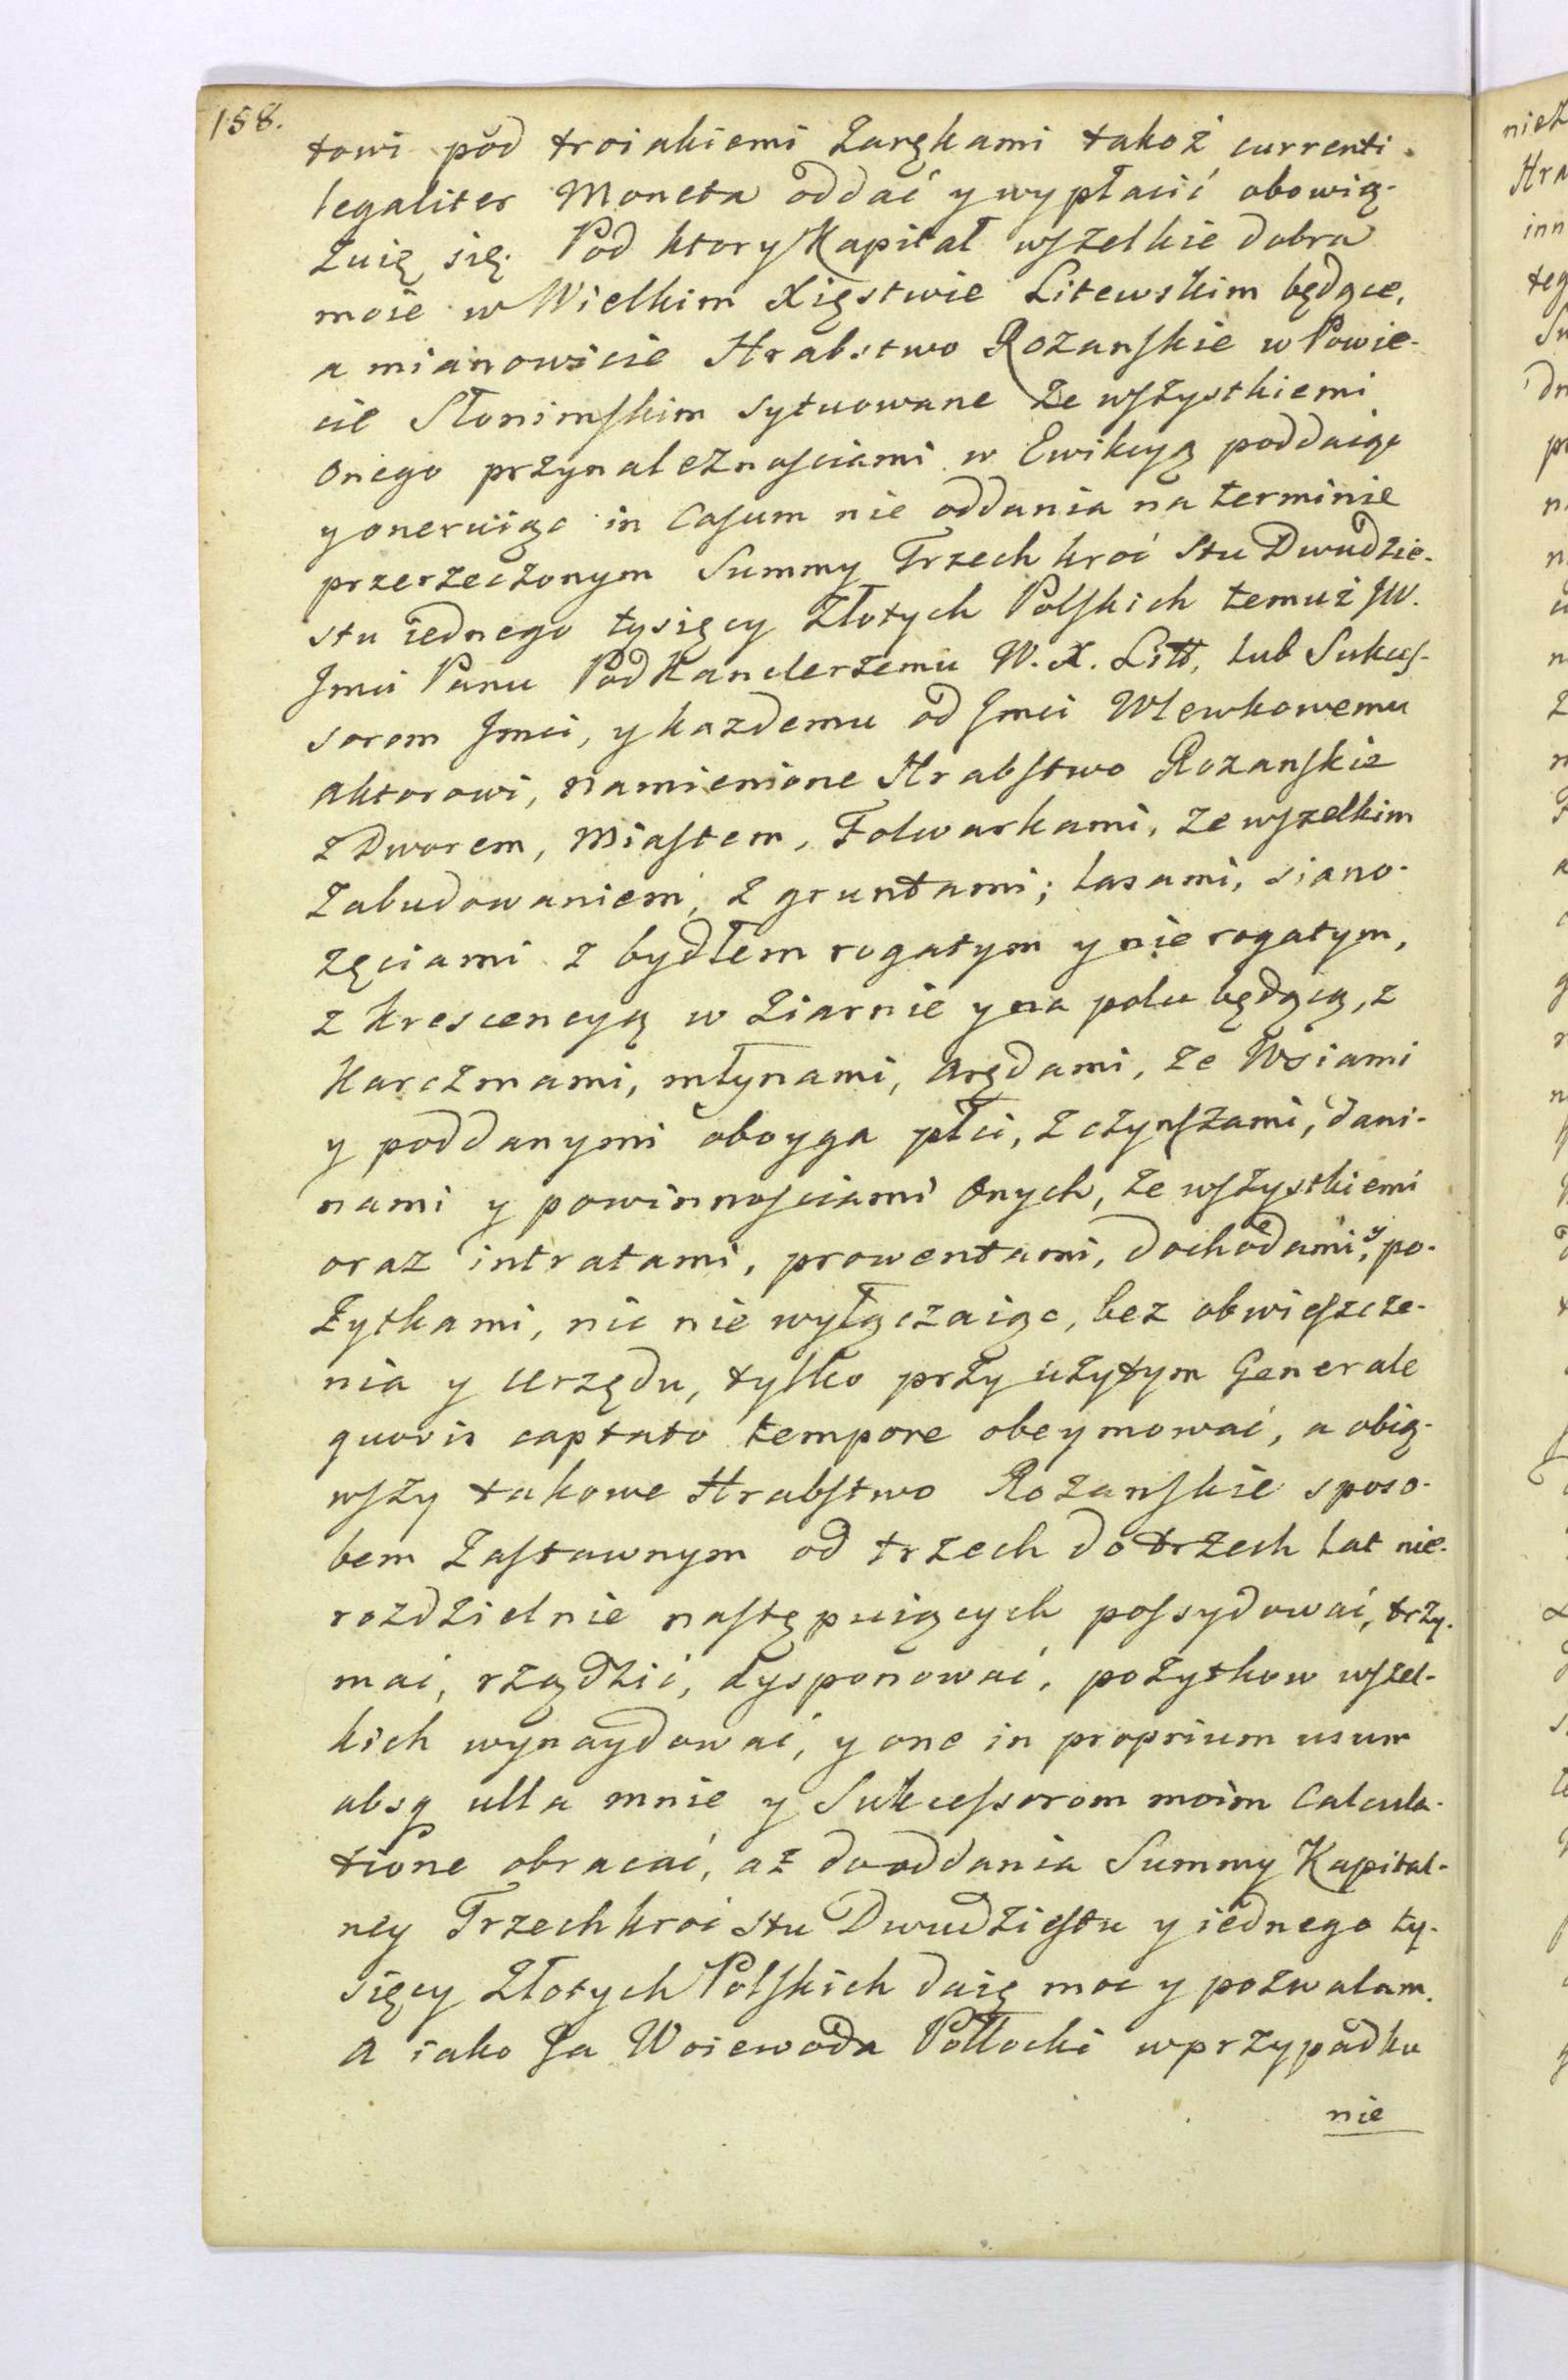 158.
towi pod troiakiemi Zarękami takoż currenti
legaliter Moneta oddać y wypłacić obowią-
zuię się. Pod ktory Kapitał wszelkie dobra
moie w Wielkim Xięstwie Litewskim będące,
a mianowicie Hrabstwo Rozanskie w Powie-
cie Słonimskim sytuowane ze wszystkiemi
onego przynależnościami w Ewikcyą poddaiąc
y oneruiąc in Casum nie oddania na terminie
przerzeczonym Summy Trzech kroć Stu Dwudzie-
stu iednego tysięcy Złotych Polskich temuż JW.
Jmci Panu Podkanclerzemu W. X. Litt, lub Sukces-
sorom Jmci, y kazdemu od Jmci Wlewkowemu
aktorowi, namienione Hrabstwo Rozanskie
z Dworem, Miastem, Folwarkami, ze wszelkim
zabudowaniem, z gruntami; lasami, siano-
zęciami z bydłem rogatym y nie rogatym,
z krescencyą w Ziarnie y na polu będącą, z
Karczmami, młynami, arędami, ze Wsiami
y poddanymi oboyga płci, z czynszami, dani-
nami y powinnościami onych, ze wszystkiemi
oraz intratami, prowentami, dochodami, y po-
żytkami, nic nie wyłączaiąc, bez obwieszcze-
nia y urzędu, tylko przy użytym Generale
quovis captato tempore obeymować, a obią-
wszy takowe Hrabstwo Rozanskie sposo-
bem Zastawnym od trzech do trzech lat nie-
rozdzielnie następuiących possydować, trzy-
mać, rządzić, dysponować, pożytkow wszel-
kich wynaydować, y one in proprium usum
absq ulla mnie y Sukcessorom moim Calcula-
tione obracać, aż do oddania Summy Kapital-
ney Trzechkroć stu Dwudziestu y iednego ty-
sięcy Złotych Polskich daię moc y pozwalam.
A iako Ja Woiewoda Połłocki w przypadku
nie